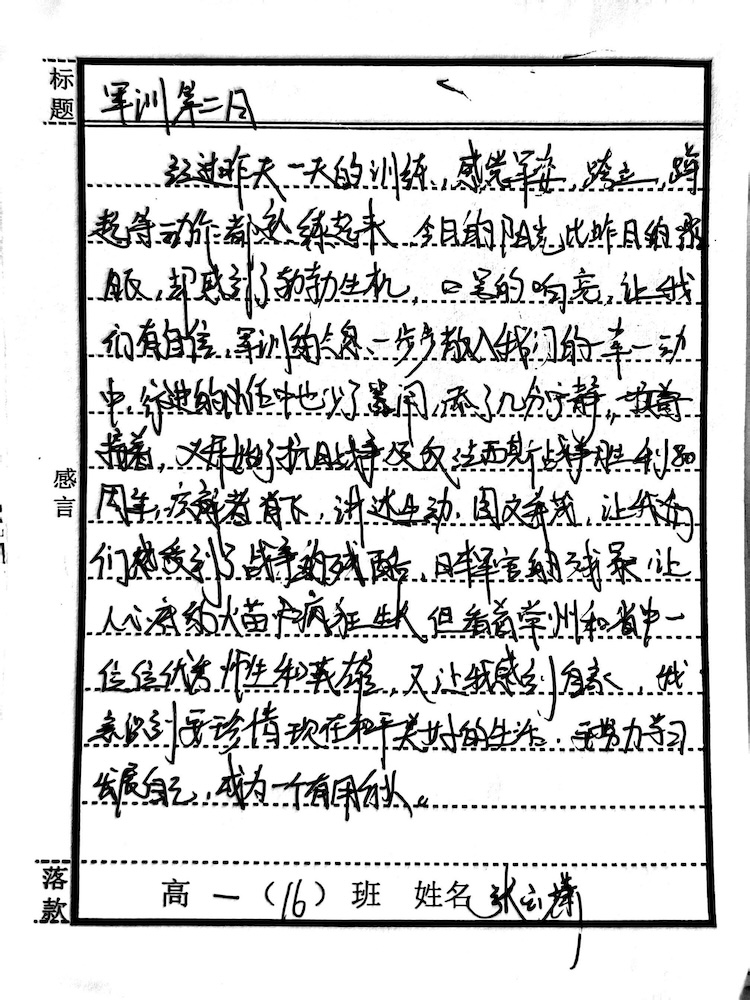 标题
军训第二日
经过昨天一天的训练，感觉军姿，跨立，蹲
起等动作都熟练起来，今日的阳光比昨日的
却感到了勃勃生机，口号的响亮，让我
们有自信，军训的气息一步步散入我们的一举一动
中，行进的队伍中也少了，添了几分宁静。
又开始了抗日战争及反法西斯战争胜利80
周年，讲述生动，图文并茂，让我
们感受到了战争的残酷，日本军官的残暴，让
人心底的火苗疯狂生长，但看着常州和省中一
位位优秀师生和英雄，又让我感到自豪，我
意识到要珍惜现在和平美好的生活，要努力学习
发展自己，成为一个有用的人。
感言
落款
高一（16）班 姓名 张